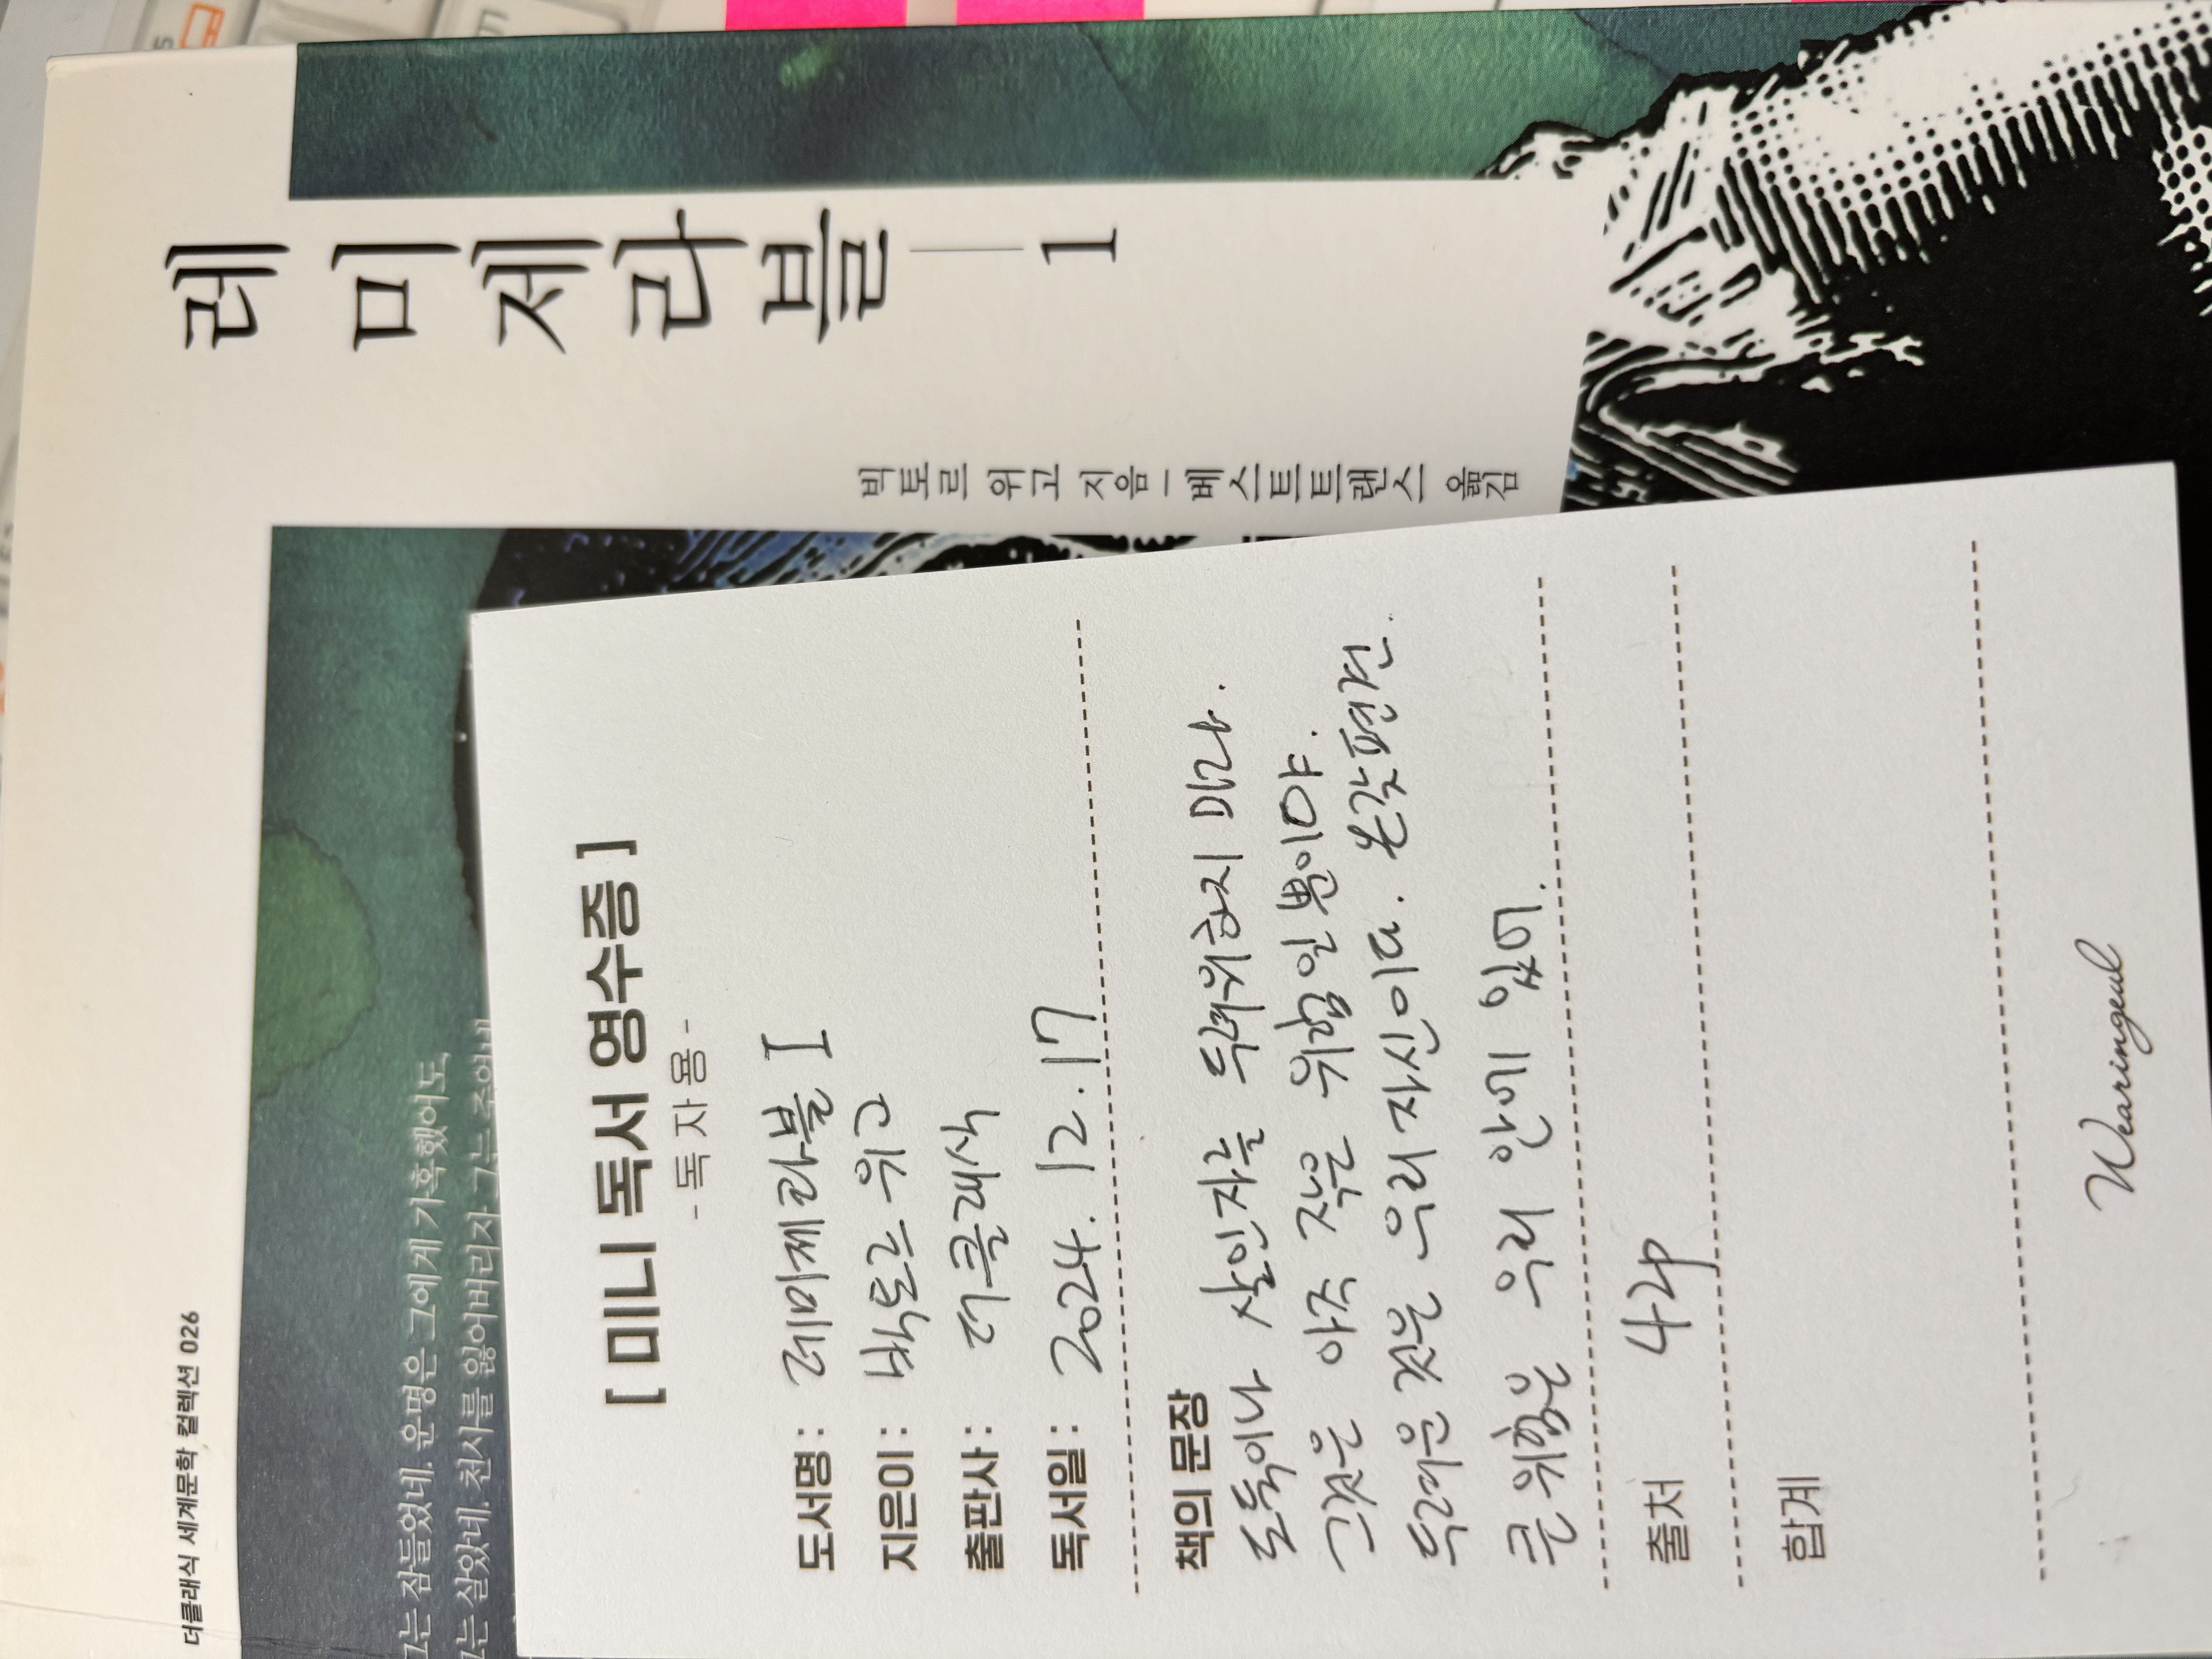 더클래식 세계문학 컬렉션 026
레미제라블 1
빅토르 위고 지음 – 베스트트랜스 옮김
그는 잠들었네. 운명은 그에게 가혹했어도,
그는 살았네. 천사를 잃어버리자 그는 죽었네
[ 미니 독서 영수증 ]
- 독자용 -
도서명 : 레미제라블 I
지은이 : 빅토르 위고
출판사 : 더클래식
독서일 : 2024. 12. 17
책의 문장
도둑이나 살인자를 두려워하지 마라.
그것은 아주 작은 위험일 뿐이야.
두려운 것은 우리 자신이다. 온갖 편견.
큰 위험은 우리 안에 있어.
출처 42p
합계
Wearingeul